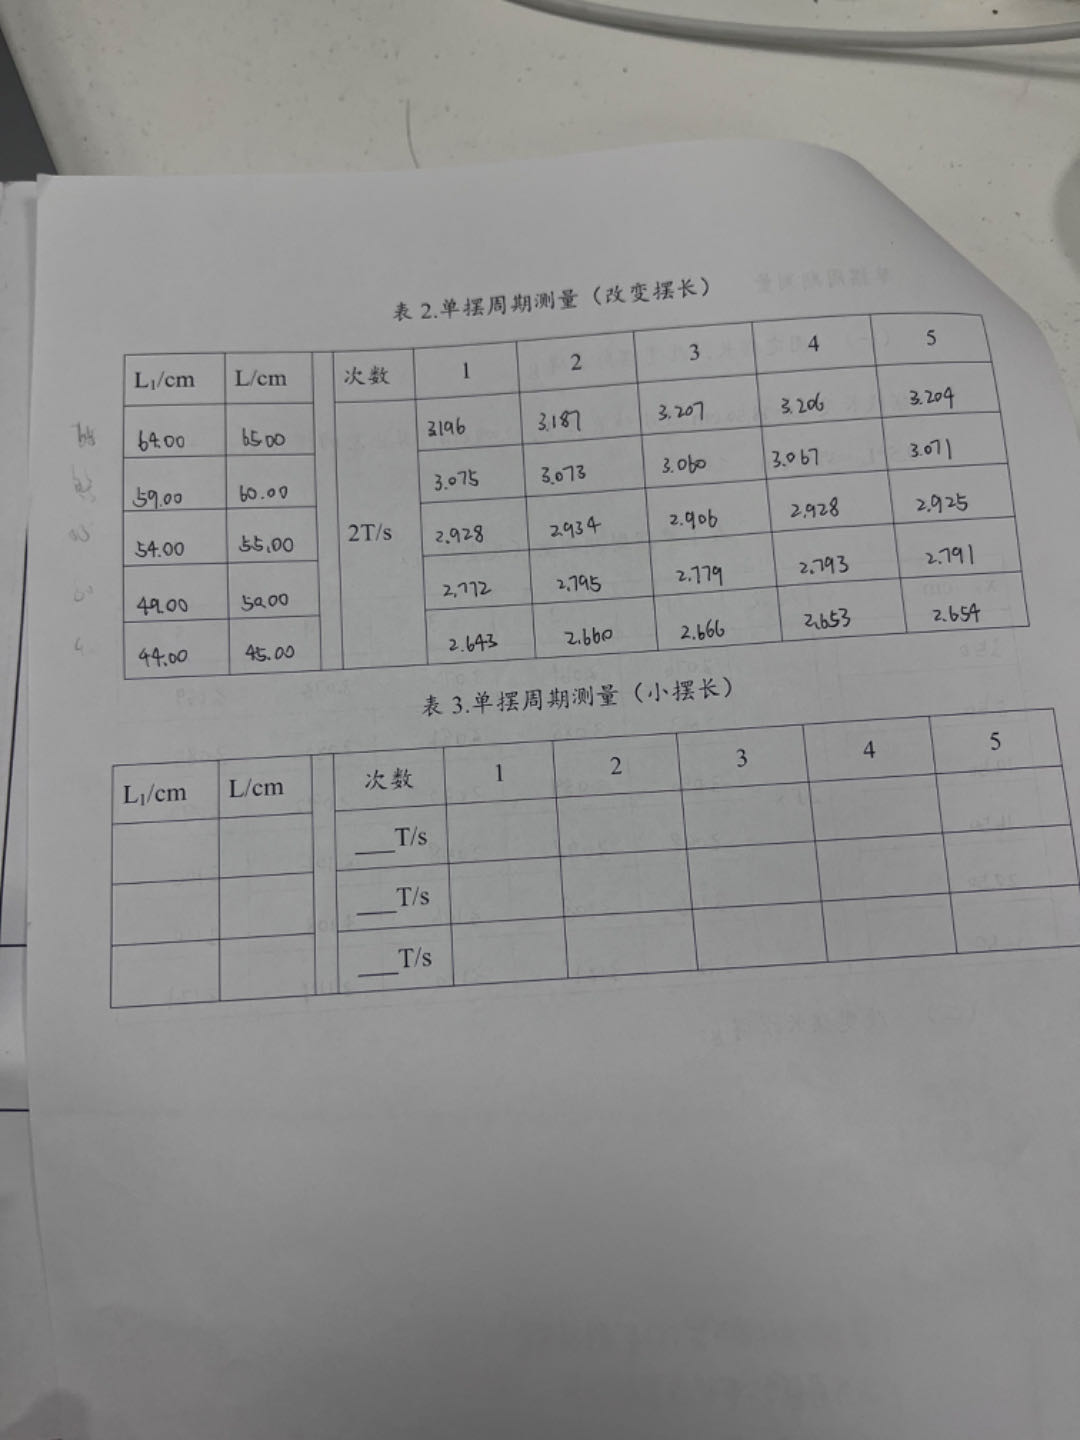 表 2.单摆周期测量（改变摆长）
L₁/cm L/cm 次数 1 2 3 4 5
64.00 65.00 3.196 3.187 3.207 3.206 3.204
59.00 60.00 3.075 3.073 3.060 3.067 3.071
54.00 55.00 2T/s 2.928 2.934 2.906 2.928 2.925
49.00 50.00 2.772 2.795 2.779 2.793 2.791
44.00 45.00 2.643 2.660 2.666 2.653 2.654
表 3.单摆周期测量（小摆长）
L₁/cm L/cm 次数 1 2 3 4 5
___T/s
___T/s
___T/s